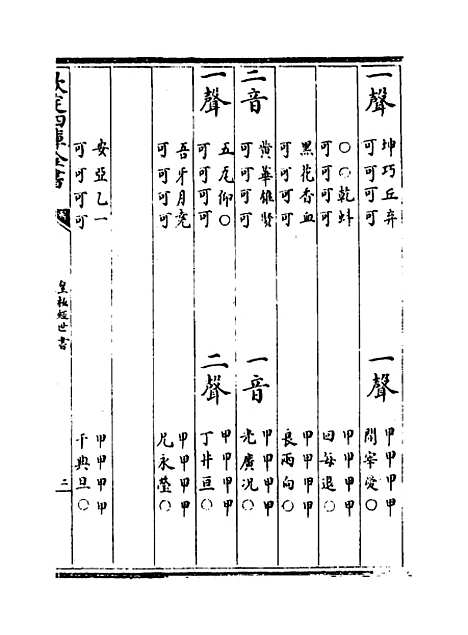 一聲
坤巧丘弃
可可可可
一聲
甲甲甲甲
開宰愛〇
〇〇乾蚪
可可可可
甲甲甲甲
回每退〇
黑花香血
可可可可
甲甲甲甲
良兩向〇
二音
黃華雄賢
可可可可
一音
甲甲甲甲
光廣況〇
一聲
五瓦仰〇
可可可可
二聲
甲甲甲甲
丁井亘〇
吾牙月堯
可可可可
甲甲甲甲
兄永瑩〇
安亞乙一
可可可可
甲甲甲甲
千典旦〇
欽定四庫全書
皇極經世書
二